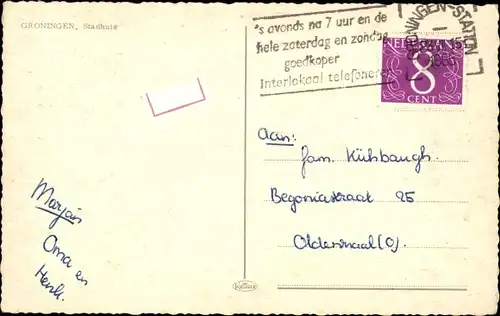 GRONINGEN, Stadhuis
's avonds na 7 uur en de
hele zaterdag en zondag
goedkoper
Interlokaal telefoneren
GRONINGEN-STATION
NEDERLAND
8
CENT
Aan:
Fam. Kühbaugh.
Begoniastraat 25
Oldenzaal (O)
Marjan
Oma en
Henk.